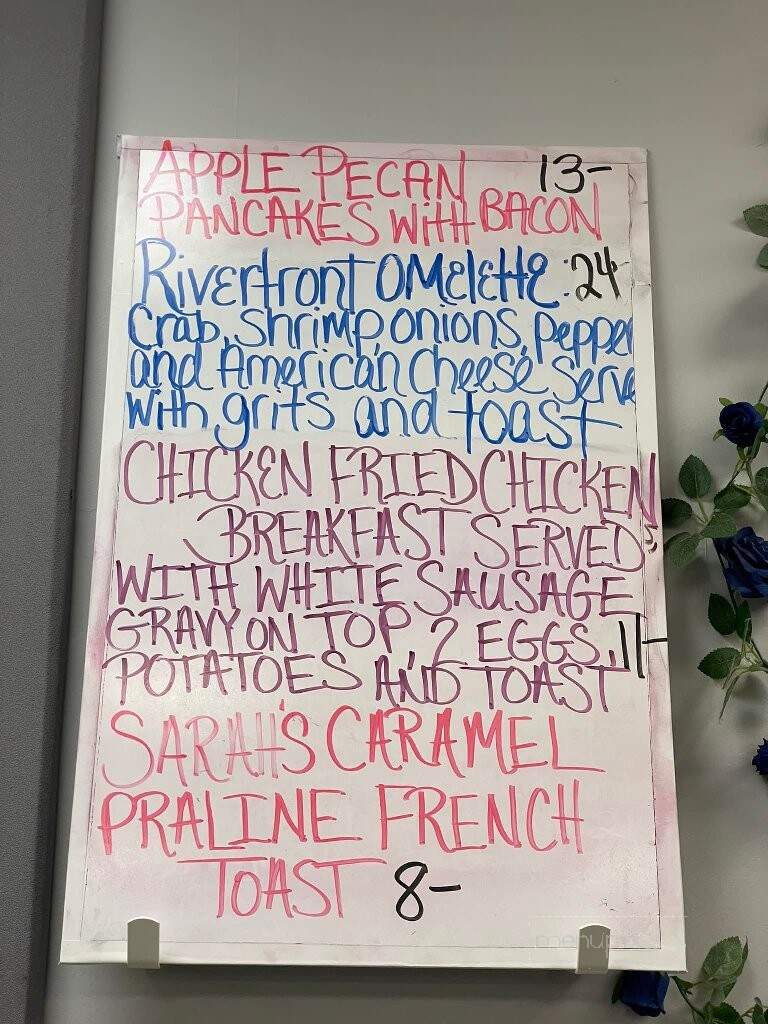 APPLE PECAN 13-
PANCAKES WITH BACON
Riverfront OMelette : 24
Crab, shrimp, onions, pepper
and American Cheese serve
with grits and toast
CHICKEN FRIED CHICKEN
BREAKFAST SERVED
WITH WHITE SAUSAGE
GRAVY ON TOP, 2 EGGS, 11-
POTATOES AND TOAST
SARAH'S CARAMEL
PRALINE FRENCH
TOAST 8-